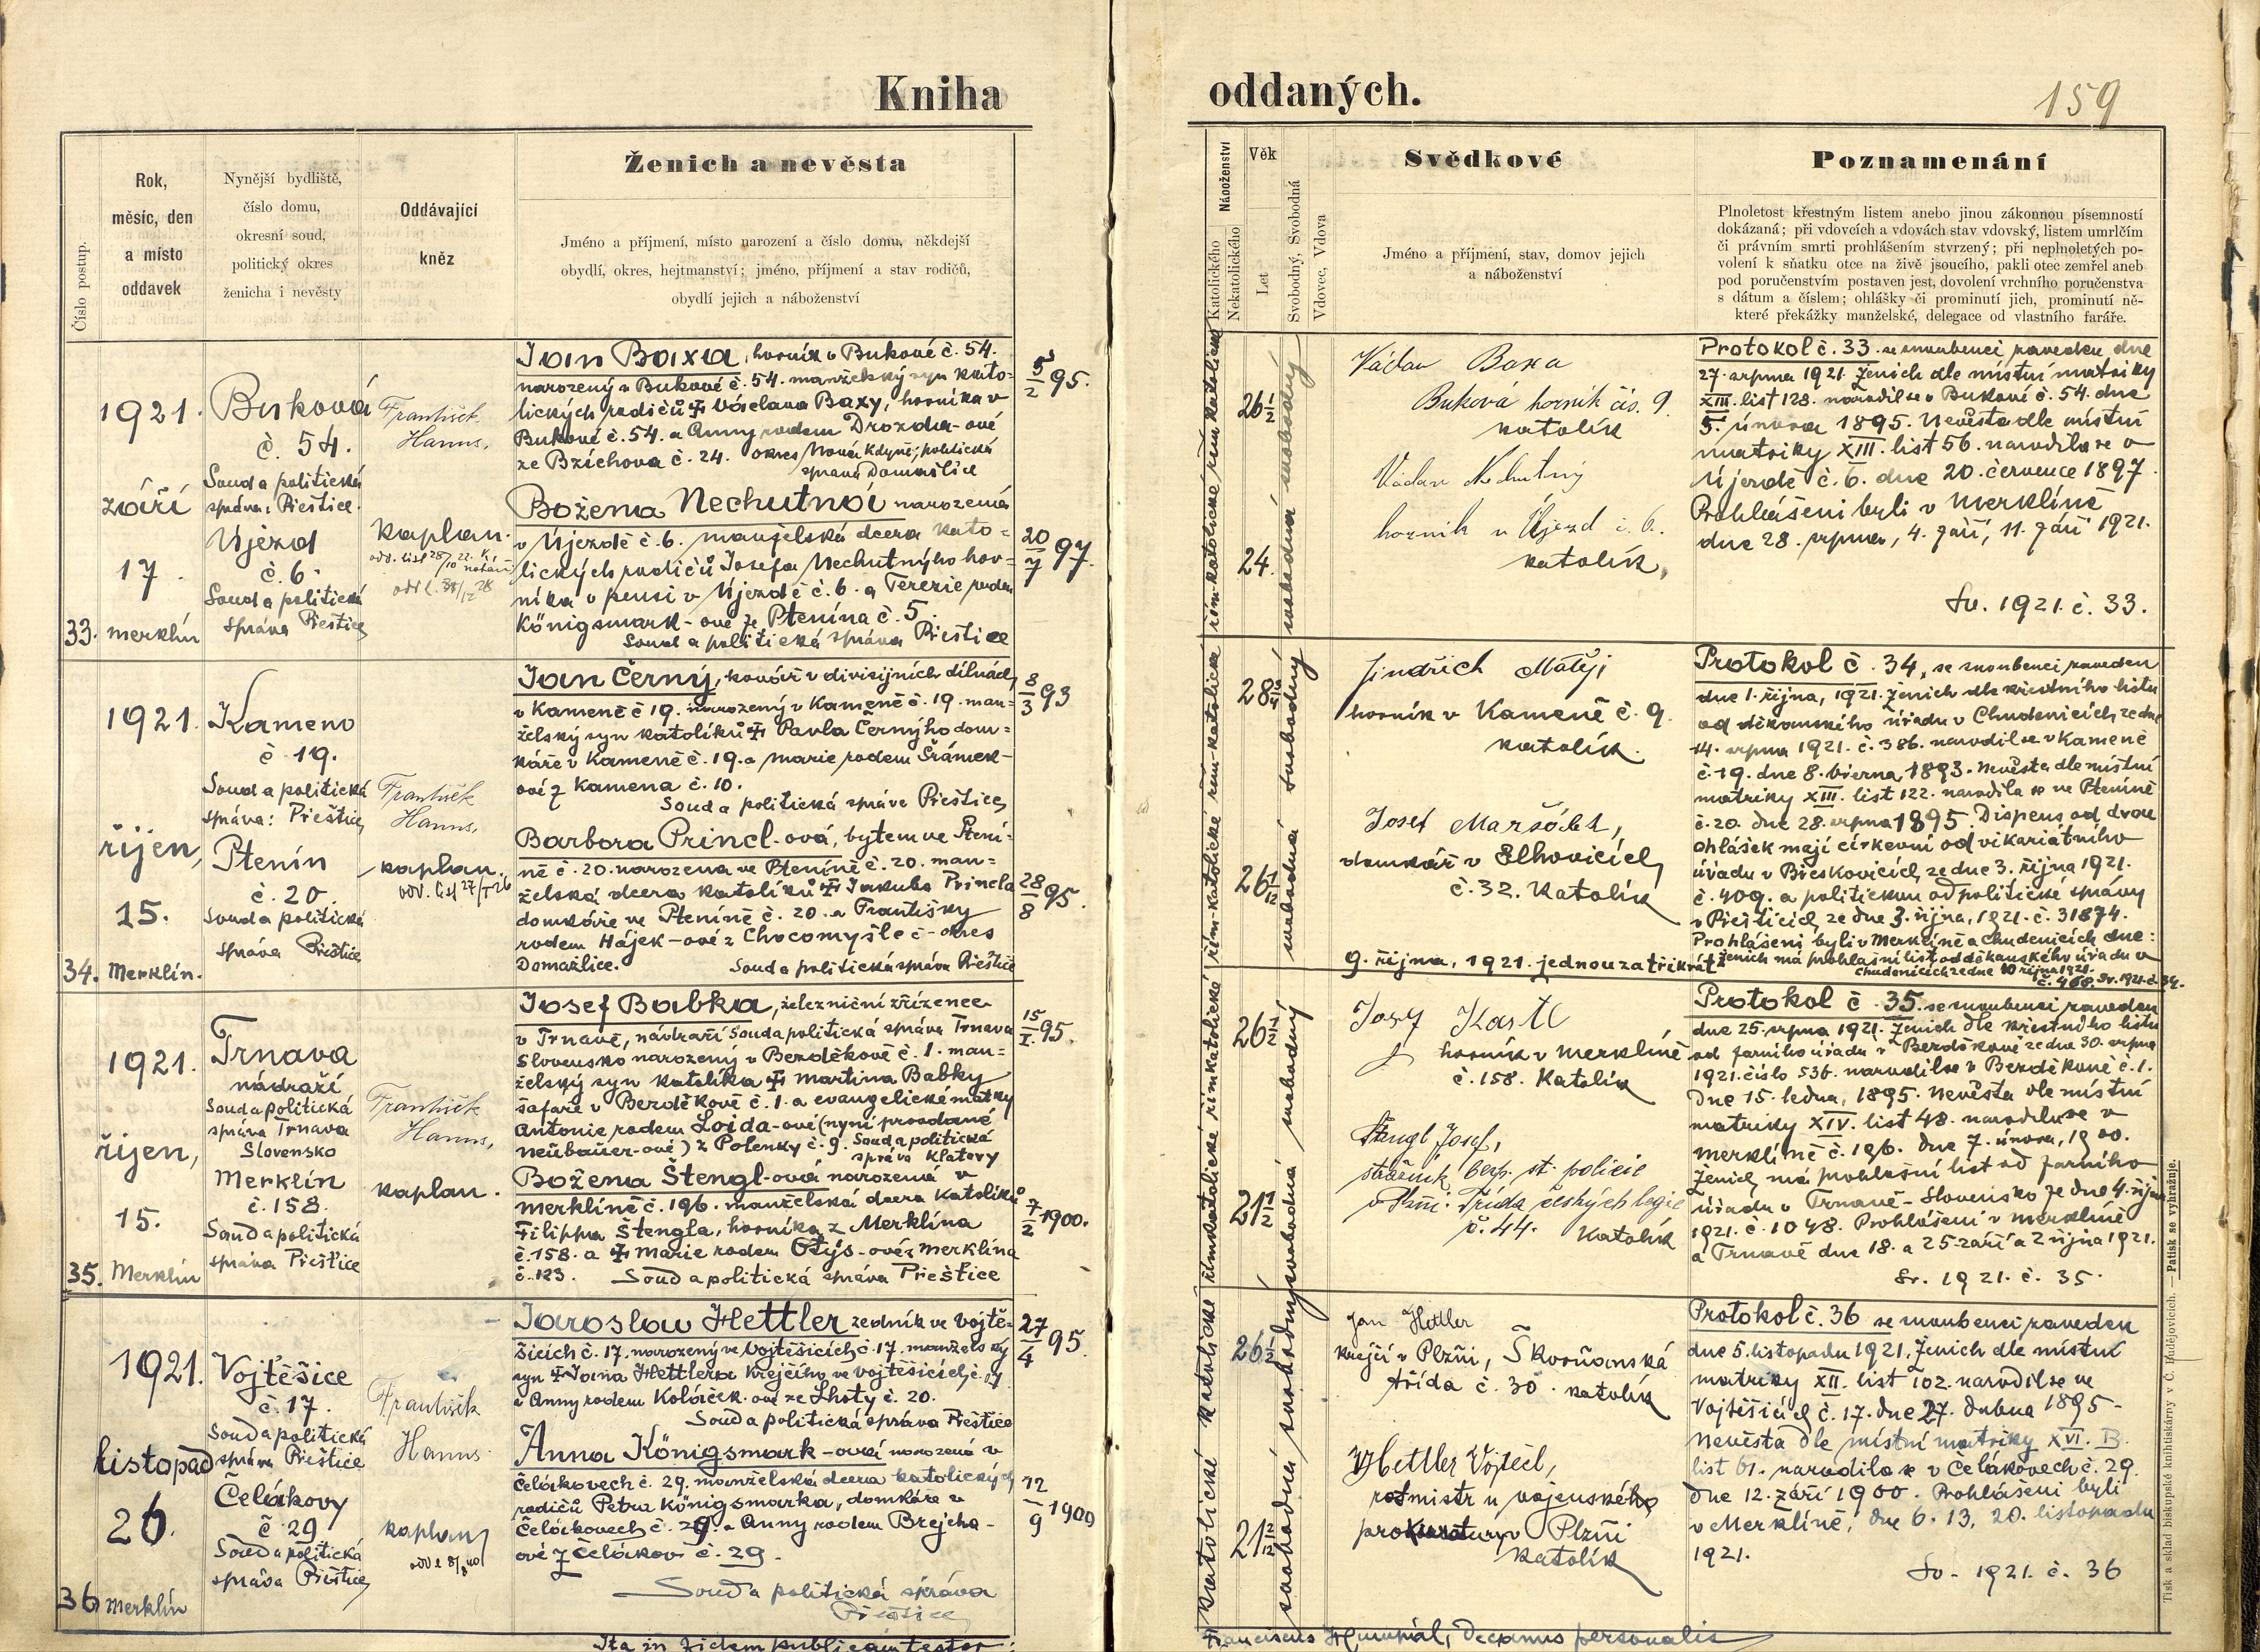 Kniha oddaných.
159
Číslo postup.
Rok,
měsíc, den
a místo
oddavek
Nynější bydliště,
číslo domu,
okresní soud,
politický okres
ženicha i nevěsty
Oddávající
kněz
Ženich a nevěsta
Jméno a příjmení, místo narození a číslo domu, někdejší
obydlí, okres, hejtmanství; jméno, příjmení a stav rodičů,
obydlí jejich a náboženství
Náboženství
Katolického
Nekatolického
Věk
Let
Svobodný, Svobodná
Vdovec, Vdova
Svědkové
Jméno a příjmení, stav, domov jejich
a náboženství
Poznamenání
Plnoletost křestným listem anebo jinou zákonnou písemností
dokázaná; při vdovcích a vdovách stav vdovský, listem umrlčím
či právním smrti prohlášením stvrzený; při neplnoletých po-
volení k sňatku otce na živě jsoucího, pakli otec zemřel aneb
pod poručenstvím postaven jest, dovolení vrchního poručenstva
s dátum a číslem; ohlášky či prominutí jich, prominutí ně-
které překážky manželské, delegace od vlastního faráře.
33.
1921.
září
17.
Merklín
Buková
č. 54.
Soud a politická
správa: Přeštice.
Újezd
č. 6.
Soud a politická
správa Přeštice
František
Hanus,
kaplan.
Jan Baxa, horník v Bukové č. 54.
narozený v Bukové č. 54. manželský syn kato=
lických rodičů † Václava Baxy, horníka v
Bukové č. 54. a Anny rodem Drozda-ové
ze Bzíchova č. 24. okres Nová Kdyně; politická
správa Domažlice
5/2 95.
Božena Nechutná narozená
v Újezdě č. 6. manželská dcera kato=
lických rodičů Josefa Nechutného hor=
níka v pensi v Újezdě č. 6. a Terezie rodem
Königsmark-ové ze Ptenína č. 5.
Soud a politická správa Přeštice
20/7 97.
26 7/12
24.
Václav Baxa
Buková horník čís. 9.
katolík
Václav Nechutný
horník v Újezd č. 6.
katolík,
Protokol č. 33. se snoubenci zaveden dne
27. srpna 1921. Ženich dle místní matriky
XIII. list 128. narodil se v Bukové č. 54. dne
5. února 1895. Nevěsta dle místní
matriky XIII. list 56. narodila se v
Újezdě č. 6. dne 20. července 1897.
Prohlášeni byli v Merklíně
dne 28. srpna, 4. září, 11. září 1921.
Sv. 1921. č. 33.
34.
1921.
říjen,
15.
Merklín.
Kameno
č 19.
Soud a politická
správa: Přeštice
Ptenín
č. 20
Soud a politická
správa Přeštice
František
Hanus,
kaplan.
Jan Černý, kovář v divisijních dílnách
v Kameně č 19. narozený v Kameně č. 19. man=
želský syn katolíků † Pavla Černýho dom=
káře v Kameně č. 19. a Marie rodem Šrámek-
ové z Kamena č. 10.
Soud a politická správa Přeštice
8/3 93
Barbora Princl-ová, bytem ve Ptení=
ně č. 20. narozena ve Pteníně č. 20. man=
želská dcera katolíků † Jakuba Princla
domkáře ve Pteníně č. 20. a Františky
rodem Hájek-ové z Chocomyšle č- okres
Domažlice. Soud a politická správa Přeštice
28/8 95.
Jindřich Matěj
horník v Kameně č. 9.
katolík.
Josef Maršálek,
domkář v Elhovicích
č. 32. Katolík
Protokol č. 34, se snoubenci zaveden
dne 1. října, 1921. Ženich dle křestního listu
od děkanského úřadu v Chudenicích ze dne
14. srpna 1921. č. 386. narodil se v Kameně
č-19. dne 8. března 1893. Nevěsta dle místní
matriky XIII. list 122. narodila se ve Pteníně
č. 20. dne 28. srpna 1895. Dispens od dvou
ohlášek mají církevní od vikariátního
úřadu v Břeskovicích, ze dne 3. října 1921.
č. 409. a politickou od politické správy
v Přešticích, ze dne 3. října, 1921. č. 31874.
Prohlášeni byli v Merklíně a Chudenicích dne:
9. října, 1921. jednou za třikrát
Ženich má prohlašní list od děkanského úřadu v
Chudenicích ze dne 10 října 1921.
č. 468. Sv. 1921. č. 34.
35.
1921.
říjen,
15.
Merklín
Trnava
nádraží
Soud a politická
správa Trnava
Slovensko
Merklín
č. 158.
Soud a politická
správa Přeštice
František
Hanus,
kaplan.
Josef Babka, železniční zřízenec
v Trnavě, nádraží Soud a politická správa Trnava
Slovensko narozený v Bezděkově č. 1. man=
želský syn katolíka † Martina Babky
šafáře v Bezděkově č. 1. a evangelické matky
Antonie rodem Loida-ové (nyní provdané
Neübauer-ové) z Polenky č. 9. Soud a politická
správa Klatovy
15/I. 95.
Božena Štengl-ová narozená v
Merklíně č. 196. manželská dcera katolíků
Filippa Štengla, horníka z Merklína
č. 158. a † Marie rodem Otýs-ové z Merklína
č. 123. Soud a politická správa Přeštice
7/2 1900.
Josef Kastl
horník v Merklíně
č. 158. Katolík
Štengl Josef,
strážník bezp. st. policie
v Plzni. Třída českých legií
č. 44. Katolík
Protokol č. 35. se snoubenci zaveden
dne 25. srpna 1921. Ženich dle křestního listu
od farního úřadu v Bezděkově ze dne 30. srpna
1921. číslo 536. narodil se v Bezděkově č. 1.
dne 15. ledna, 1895. Nevěsta dle místní
matriky XIV. list 48. narodila se v
Merklíně č. 196. dne 7. února, 1900.
Ženich má prohlašní list od farního
úřadu v Trnavě - Slovensko ze dne 4. října
1921. č. 1048. Prohlášeni v Merklíně
a Trnavě dne 18. a 25 září a 2 října 1921.
Sv. 1921. č. 35.
36
1921.
listopad
26.
Merklín
Vojtěšice
č. 17.
Soud a politická
správa Přeštice
Čelákovy
č. 29
Soud a politická
správa Přeštice
František
Hanus
kaplan
Jaroslav Hettler zedník ve Vojtě-
šicích č. 17. narozený ve Vojtěšicích č. 17. manželský
syn † Jana Hettlera krejčího ve Vojtěšicích, č. 17
a Anny rodem Koláček-ové ze Lhoty č. 20.
Soud a politická správa Přeštice
27/4 95.
Anna Königsmark-ová narozená v
Čelákovech č. 29. manželská dcera katolických
rodičů Petra Königsmarka, domkáře v
Čelákovech č. 29. a Anny rodem Brejcha-
ové z Čelákov č. 29.
Soud a politická správa
Přeštice
12/9 1900
Jan Hettler
krejčí v Plzni, Škorňanská
třída č. 30. katolík
Hettler Vojtěch,
rotmistr u vojenského
prokuratury v Plzni
katolík
Protokol č. 36 se snoubenci zaveden
dne 5. listopadu 1921. Ženich dle místní
matriky XII. list 102. narodil se ve
Vojtěšicích č. 17. dne 27. dubna 1895-
Nevěsta dle místní matriky XVI. B.
list 61. narodila se v Čelákovech č. 29.
dne 12. září 1900. Prohlášeni byli
v Merklíně, dne 6. 13, 20. listopadu
1921.
Sv- 1921. č. 36
Ita in fidem publicam testor:
Decanus personalis
Tisk a sklad biskupské knihtiskárny v Č. Budějovicích. — Patisk se vyhražuje.